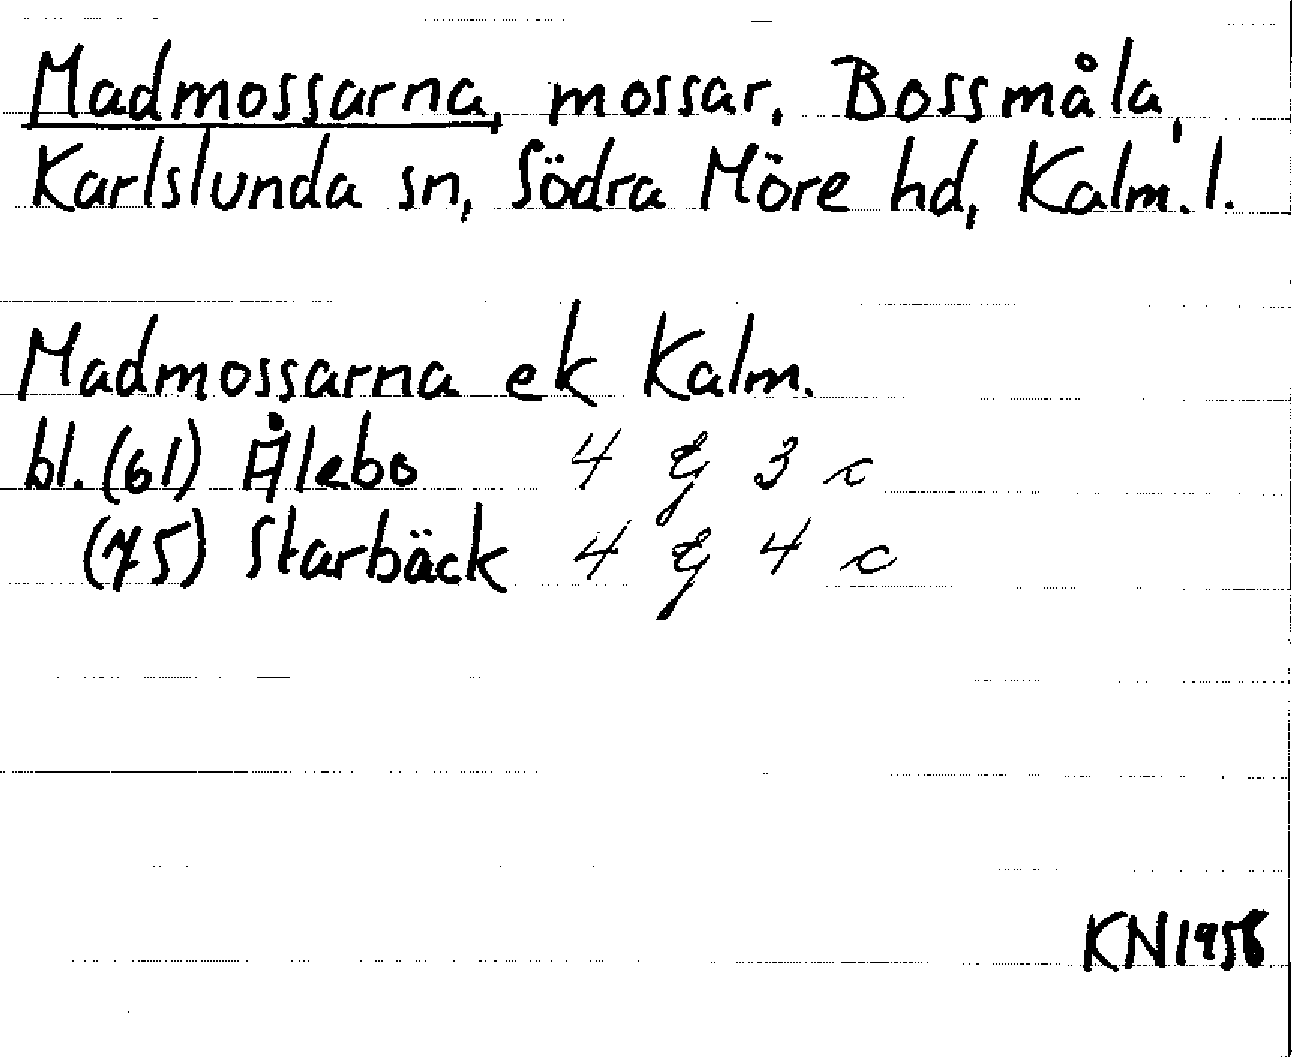 Madmossarna, mossar, Bossmåla,
Karlslunda sn, Södra Möre hd, Kalm.l.
Madmossarna ek Kalm.
bl.(61) Ålebo 4 g 3 c
(75) Starbäck 4 g 4 c
KN 1958